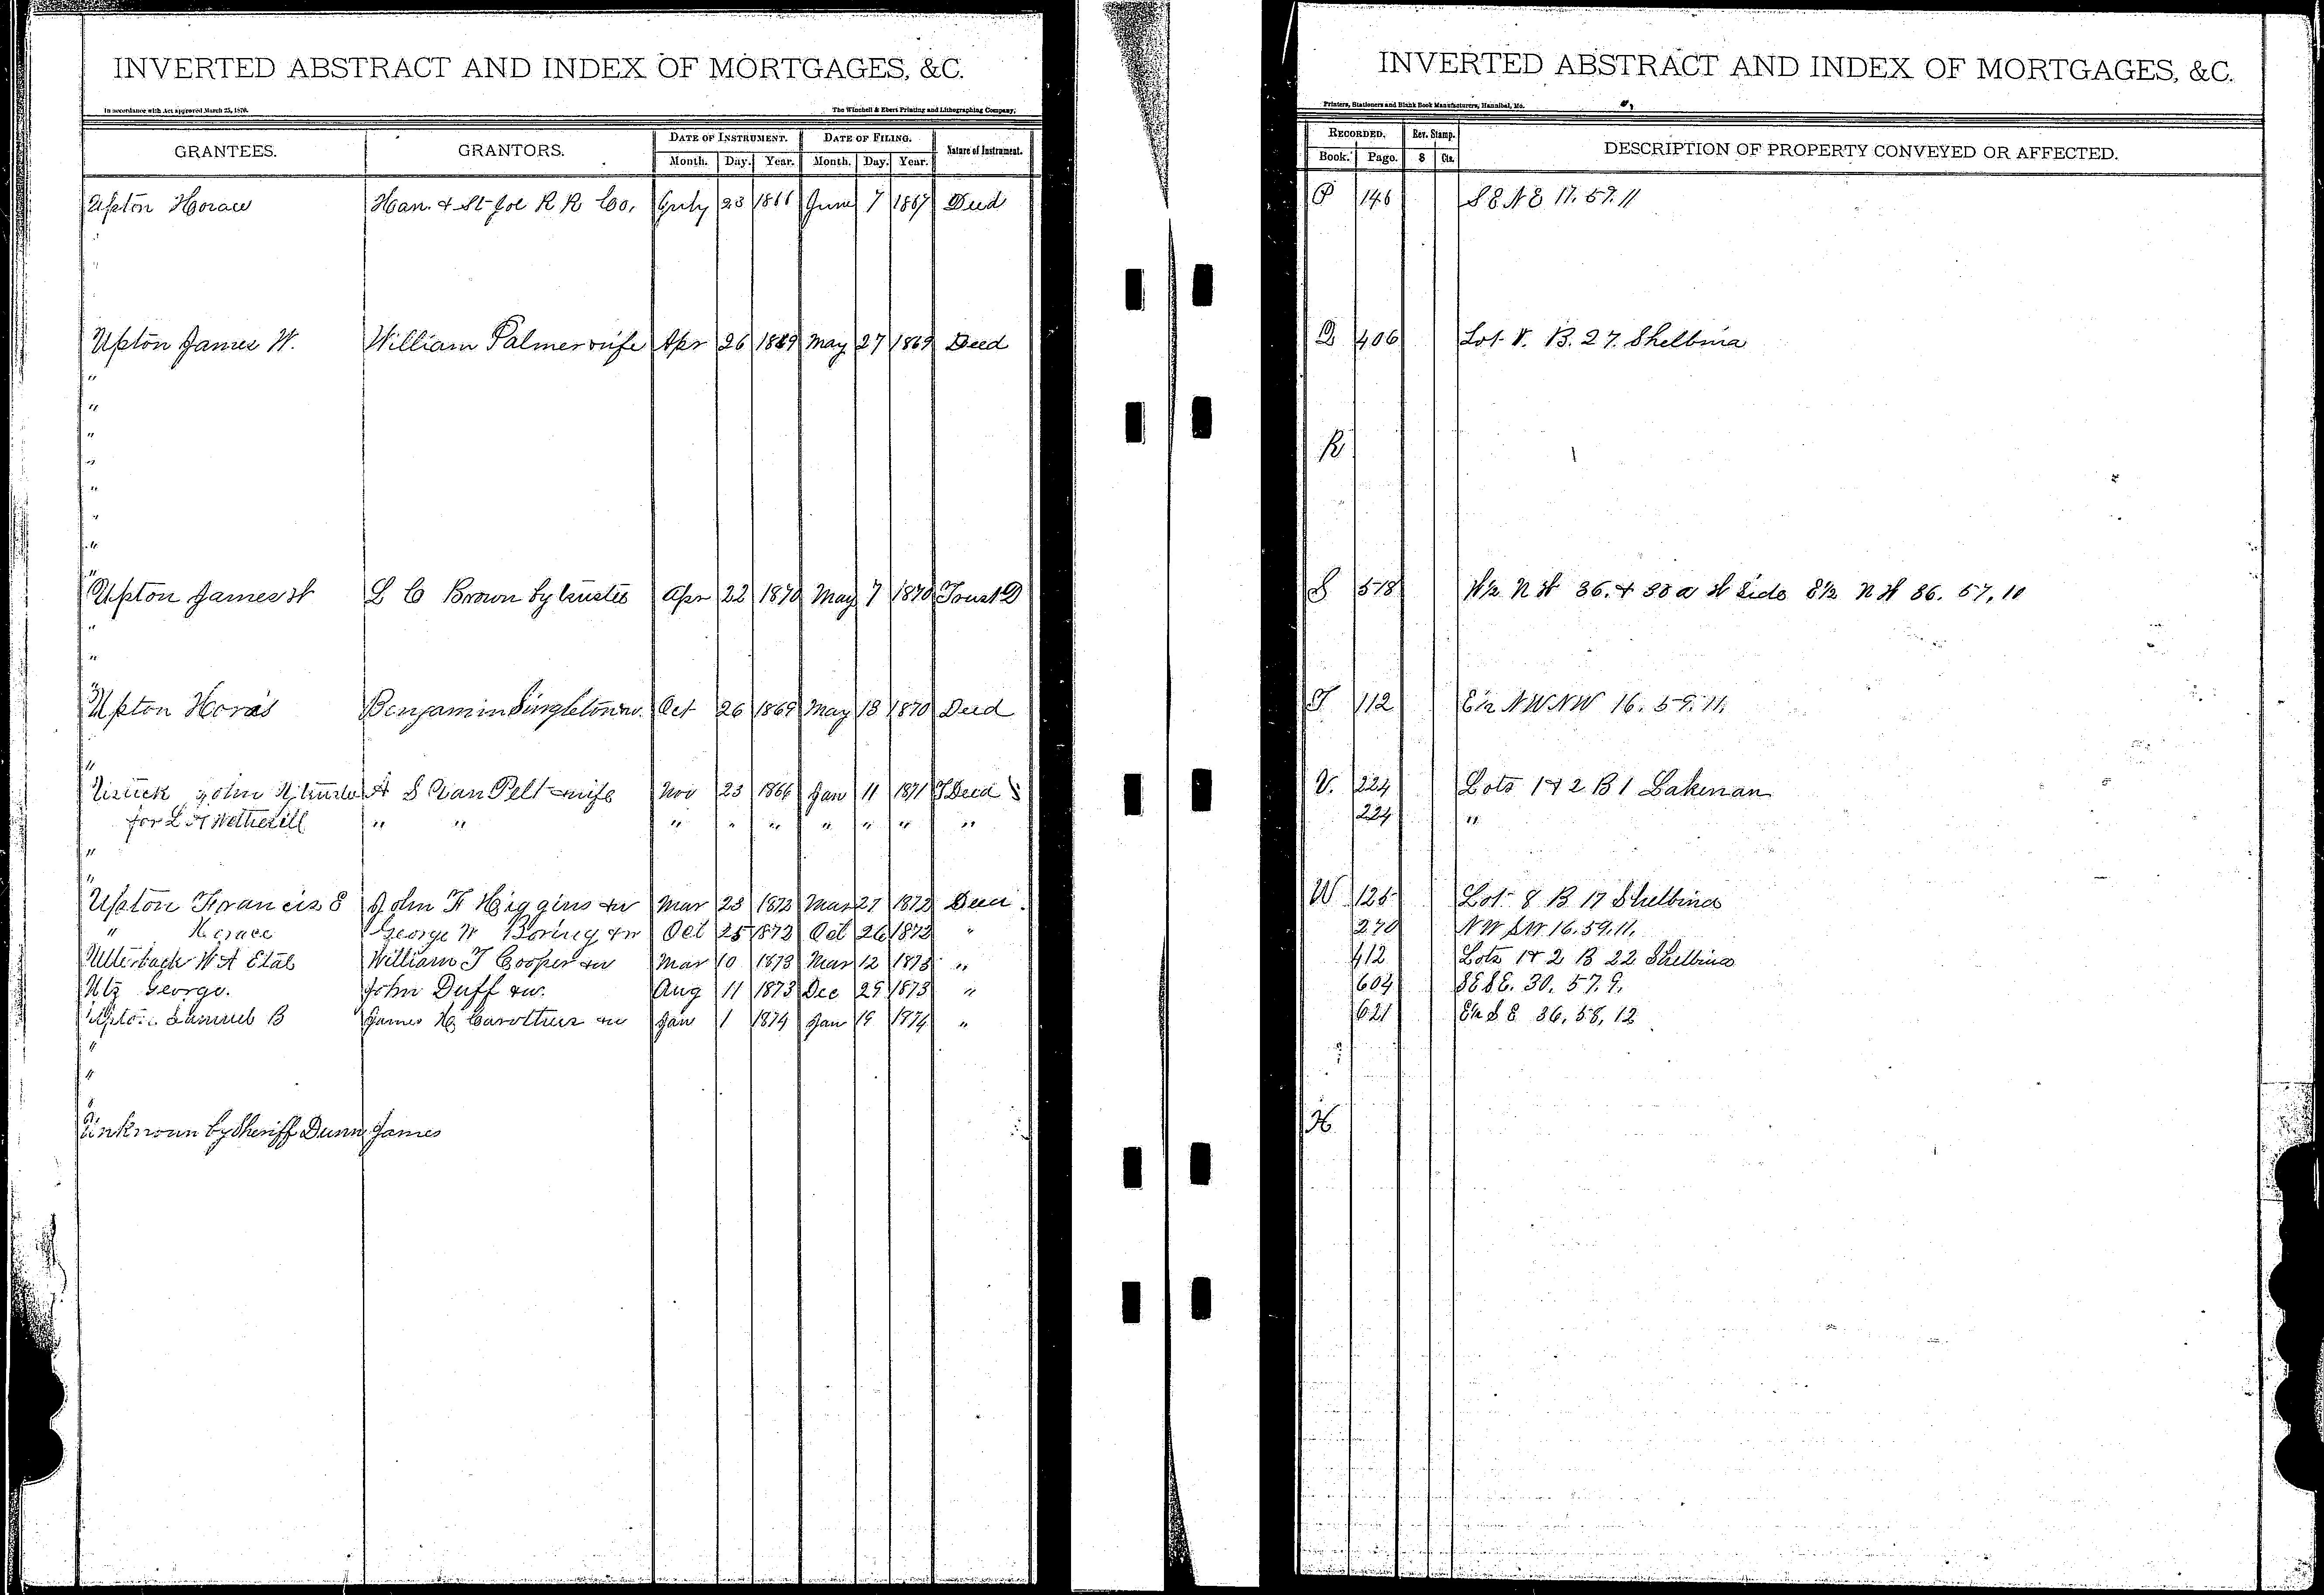 INVERTED ABSTRACT AND INDEX OF MORTGAGES, &C.
In accordance with Act approved March 25, 1870. The Winchell & Ebert Printing and Lithographing Company,
GRANTEES. GRANTORS. DATE OF INSTRUMENT. DATE OF FILING. Nature of Instrument.
Month. Day. Year. Month. Day. Year.
Upton Horace Han. & St Joe R R Co, July 23 1866 June 7 1867 Deed
Upton James W. William Palmer wife Apr 26 1869 May 27 1869 Deed
"
"
"
"
"
"
"
"
Upton James W L C Brown by trustee Apr 22 1870 May 7 1870 Trust D
"
"
"
Upton Horas Benjamin Singleton w. Oct 26 1869 May 13 1870 Deed
"
John A S VanPelt wife Nov 23 1866 Jan 11 1871 T Deed
for L Wetherill " " " " " " " " "
"
"
Upton Francis E John F Higgins &w Mar 23 1872 Mar 27 1872 Deed.
" Horace George W Boring &w Oct 25 1872 Oct 26 1872 "
Utterback W A Etal William T Cooper &w Mar 10 1873 Mar 12 1873 "
Utz George. John Duff &w. Aug 11 1873 Dec 29 1873 "
Upton Samuel B James H Carothers &w Jan 1 1874 Jan 19 1874 "
"
"
"
Unknown by Sheriff Dunn James
INVERTED ABSTRACT AND INDEX OF MORTGAGES, &C.
Printers, Stationers and Blank Book Manufacturers, Hannibal, Mo.
RECORDED. Rev. Stamp. DESCRIPTION OF PROPERTY CONVEYED OR AFFECTED.
Book. Page. $ Cts.
P 146 S E N E 17. 59. 11
Q 406 Lot V. B. 27. Shelbina
R
S 518 W½ N W 36. & 38 a W Side E½ N W 36. 57, 10
T 112 E½ NW NW 16. 59. 11.
V. 224 Lots 1 & 2 B 1 Lakenan
224 "
W 125 Lot 8 B 17 Shelbina
270 NW SW 16. 59. 11.
412 Lots 1 & 2 B 22 Shelbina
604 SE SE. 30. 57. 9.
621 E½ S E 36, 58, 12
H